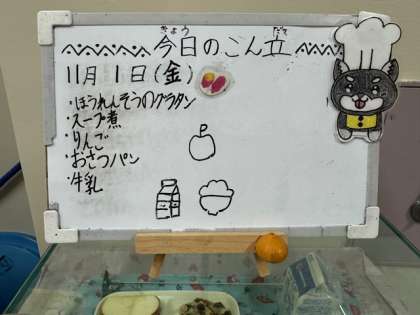 きょう だて
今日のこん立
11月1日(金)
・ほうれんそうのグラタン
・スープ煮
・りんご
・おさつパン
・牛乳